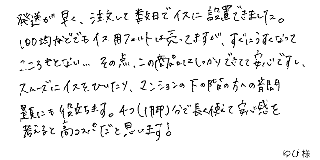 発送が早く、注文して数日でイスに設置できました。
100均などでもイス用フェルトは売ってますが、すぐにうすくなって
こころもとない…その点、この商品はしっかりできてて安心ですし、
スムーズにイスをひいたり、マンションの下の階の方への騒音
対策にも役立ちます。4つ(1脚)分で長く使えて安心感を
考えると高コスパだと思います!
ひ様